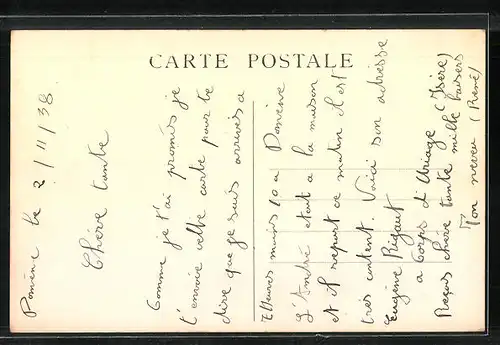 CARTE POSTALE
Domène le 2/11/38.
Chère tante
Comme je t'ai promis je
t'envoie cette carte pour te
dire que je suis arrivés a
7 heures moins 10 a Domène
L'André etait a la maison
et il repart ce matin il est
très content. Voici son adresse
Eugène Rigaut
a Corps d'Uriage (Isère)
Reçois chère tante mille baisers
Ton neveu (René)